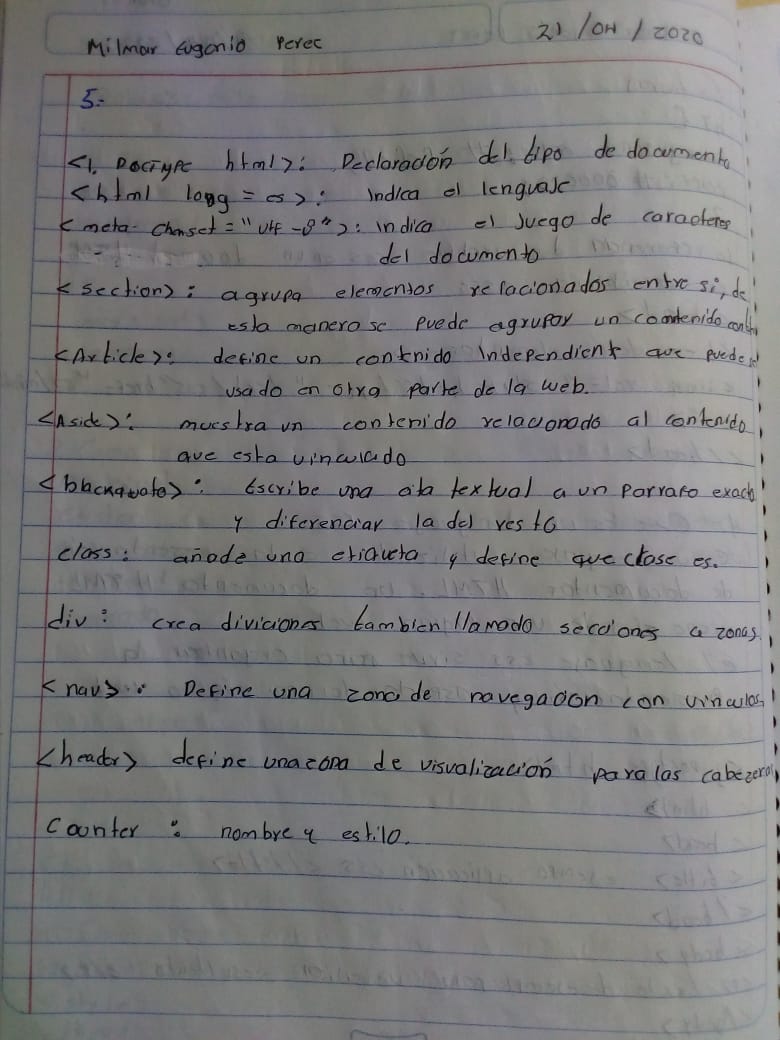 Milmar Eugenio Perec
21/04/2020
5.-
<!, DOCTYPE html>: Declaración del tipo de documento
<html lang = es>: indica el lenguaje
<meta charset = "utf -8">: indica el Juego de caracteres
del documento
<section>: agrupa elementos relacionados entre si, de
esta manera se puede agrupar un contenido
<Article>: define un contenido Independient que puede
usado en otra parte de la web.
<Aside>: muestra un contenido relacionado al contenido
que esta vinculado
: Escribe una textual a un parrafo exacto
y diferenciar la del resto
class: añade una etiqueta y define que clase es.
div: crea diviciones tambien llamado secciones a zonas
<nav>: Define una zona de navegacion con vinculos
<header> define una zona de visualización para las cabezera
Counter: nombre y estilo.